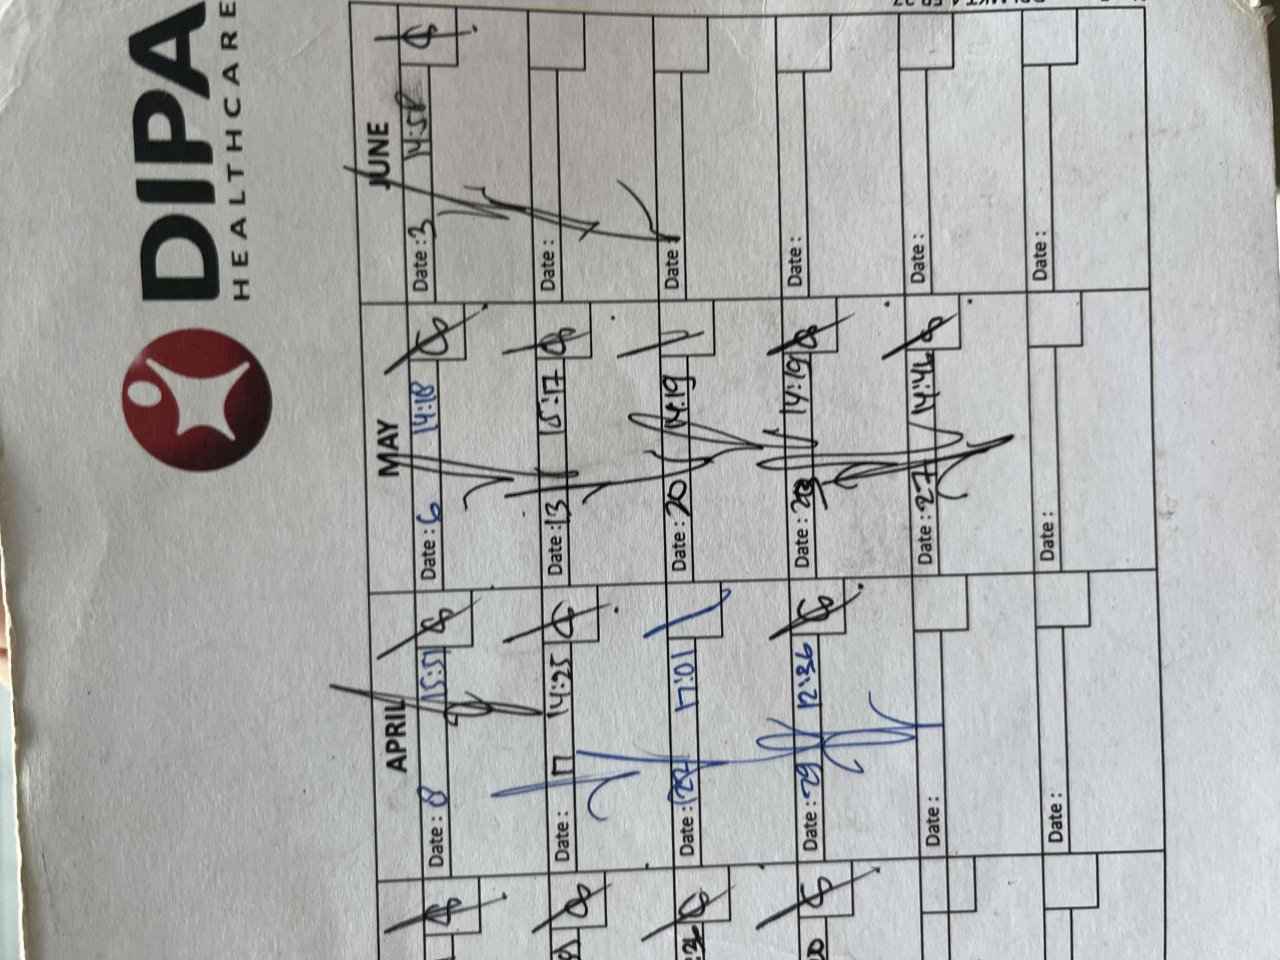 DIPA
HEALTHCARE
APRIL
Date : 8 15:51
Date : 17 14:25
Date : 17:01
Date : 29 12:36
Date :
Date :
MAY
Date : 6 14:18
Date : 13 15:17
Date : 20 14:19
Date : 14:19
Date : 27 14:46
Date :
JUNE
Date : 3 14:58
Date :
Date :
Date :
Date :
Date :